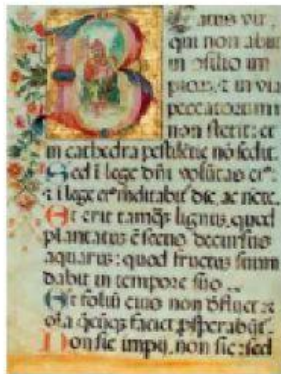 Beatus vir,
qui non abiit
in cōsilio im
pioruz, t in via
peccatorum
non stetit: et
in cathedra pestilētie nō sedit.
Sed ī lege dn̄i volūtas eiꝰ:
t ī lege eiꝰ meditabit̄ die, ac nocte.
Et erit tamq̄ȝ lignuȝ, quod
plantatuȝ ē secꝰ decursus
aquaruȝ: quod fructuȝ suum
dabit in tempore suo..
Et foliū eius non defluet: et
oīa q̄cūqȝ faciet, ꝓsperabūt̄.
Non sic impij, non sic: sed